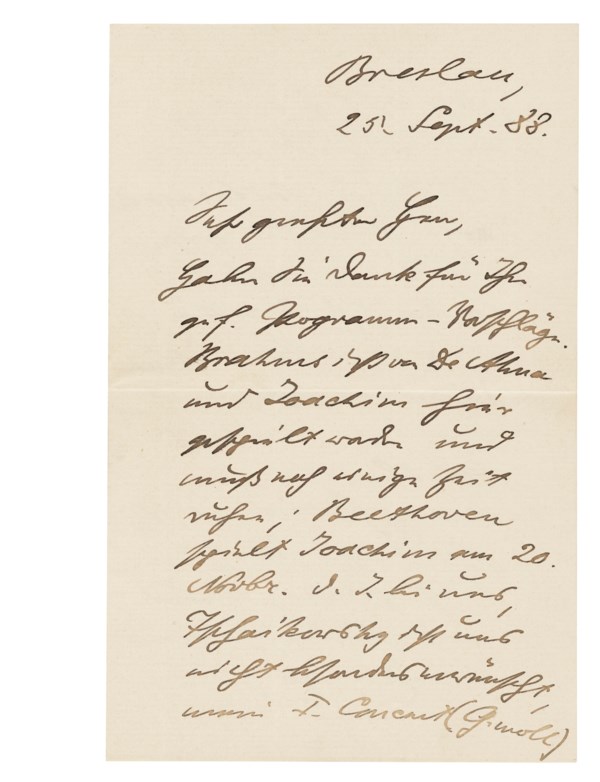 Breslau,
25. Sept. 88.
Sehr geehrter Herr,
Haben Sie Dank für Ihre
gef. Programm-Vorschläge.
Brahms ist von De Ahna
und Joachim hier
gespielt worden und
muß noch einige Zeit
ruhen; Beethoven
spielt Joachim am 20.
Novbr. d. J. bei uns,
Tschaikowsky ist uns
nicht besonders erwünscht,
mein I. Concert (G-moll)